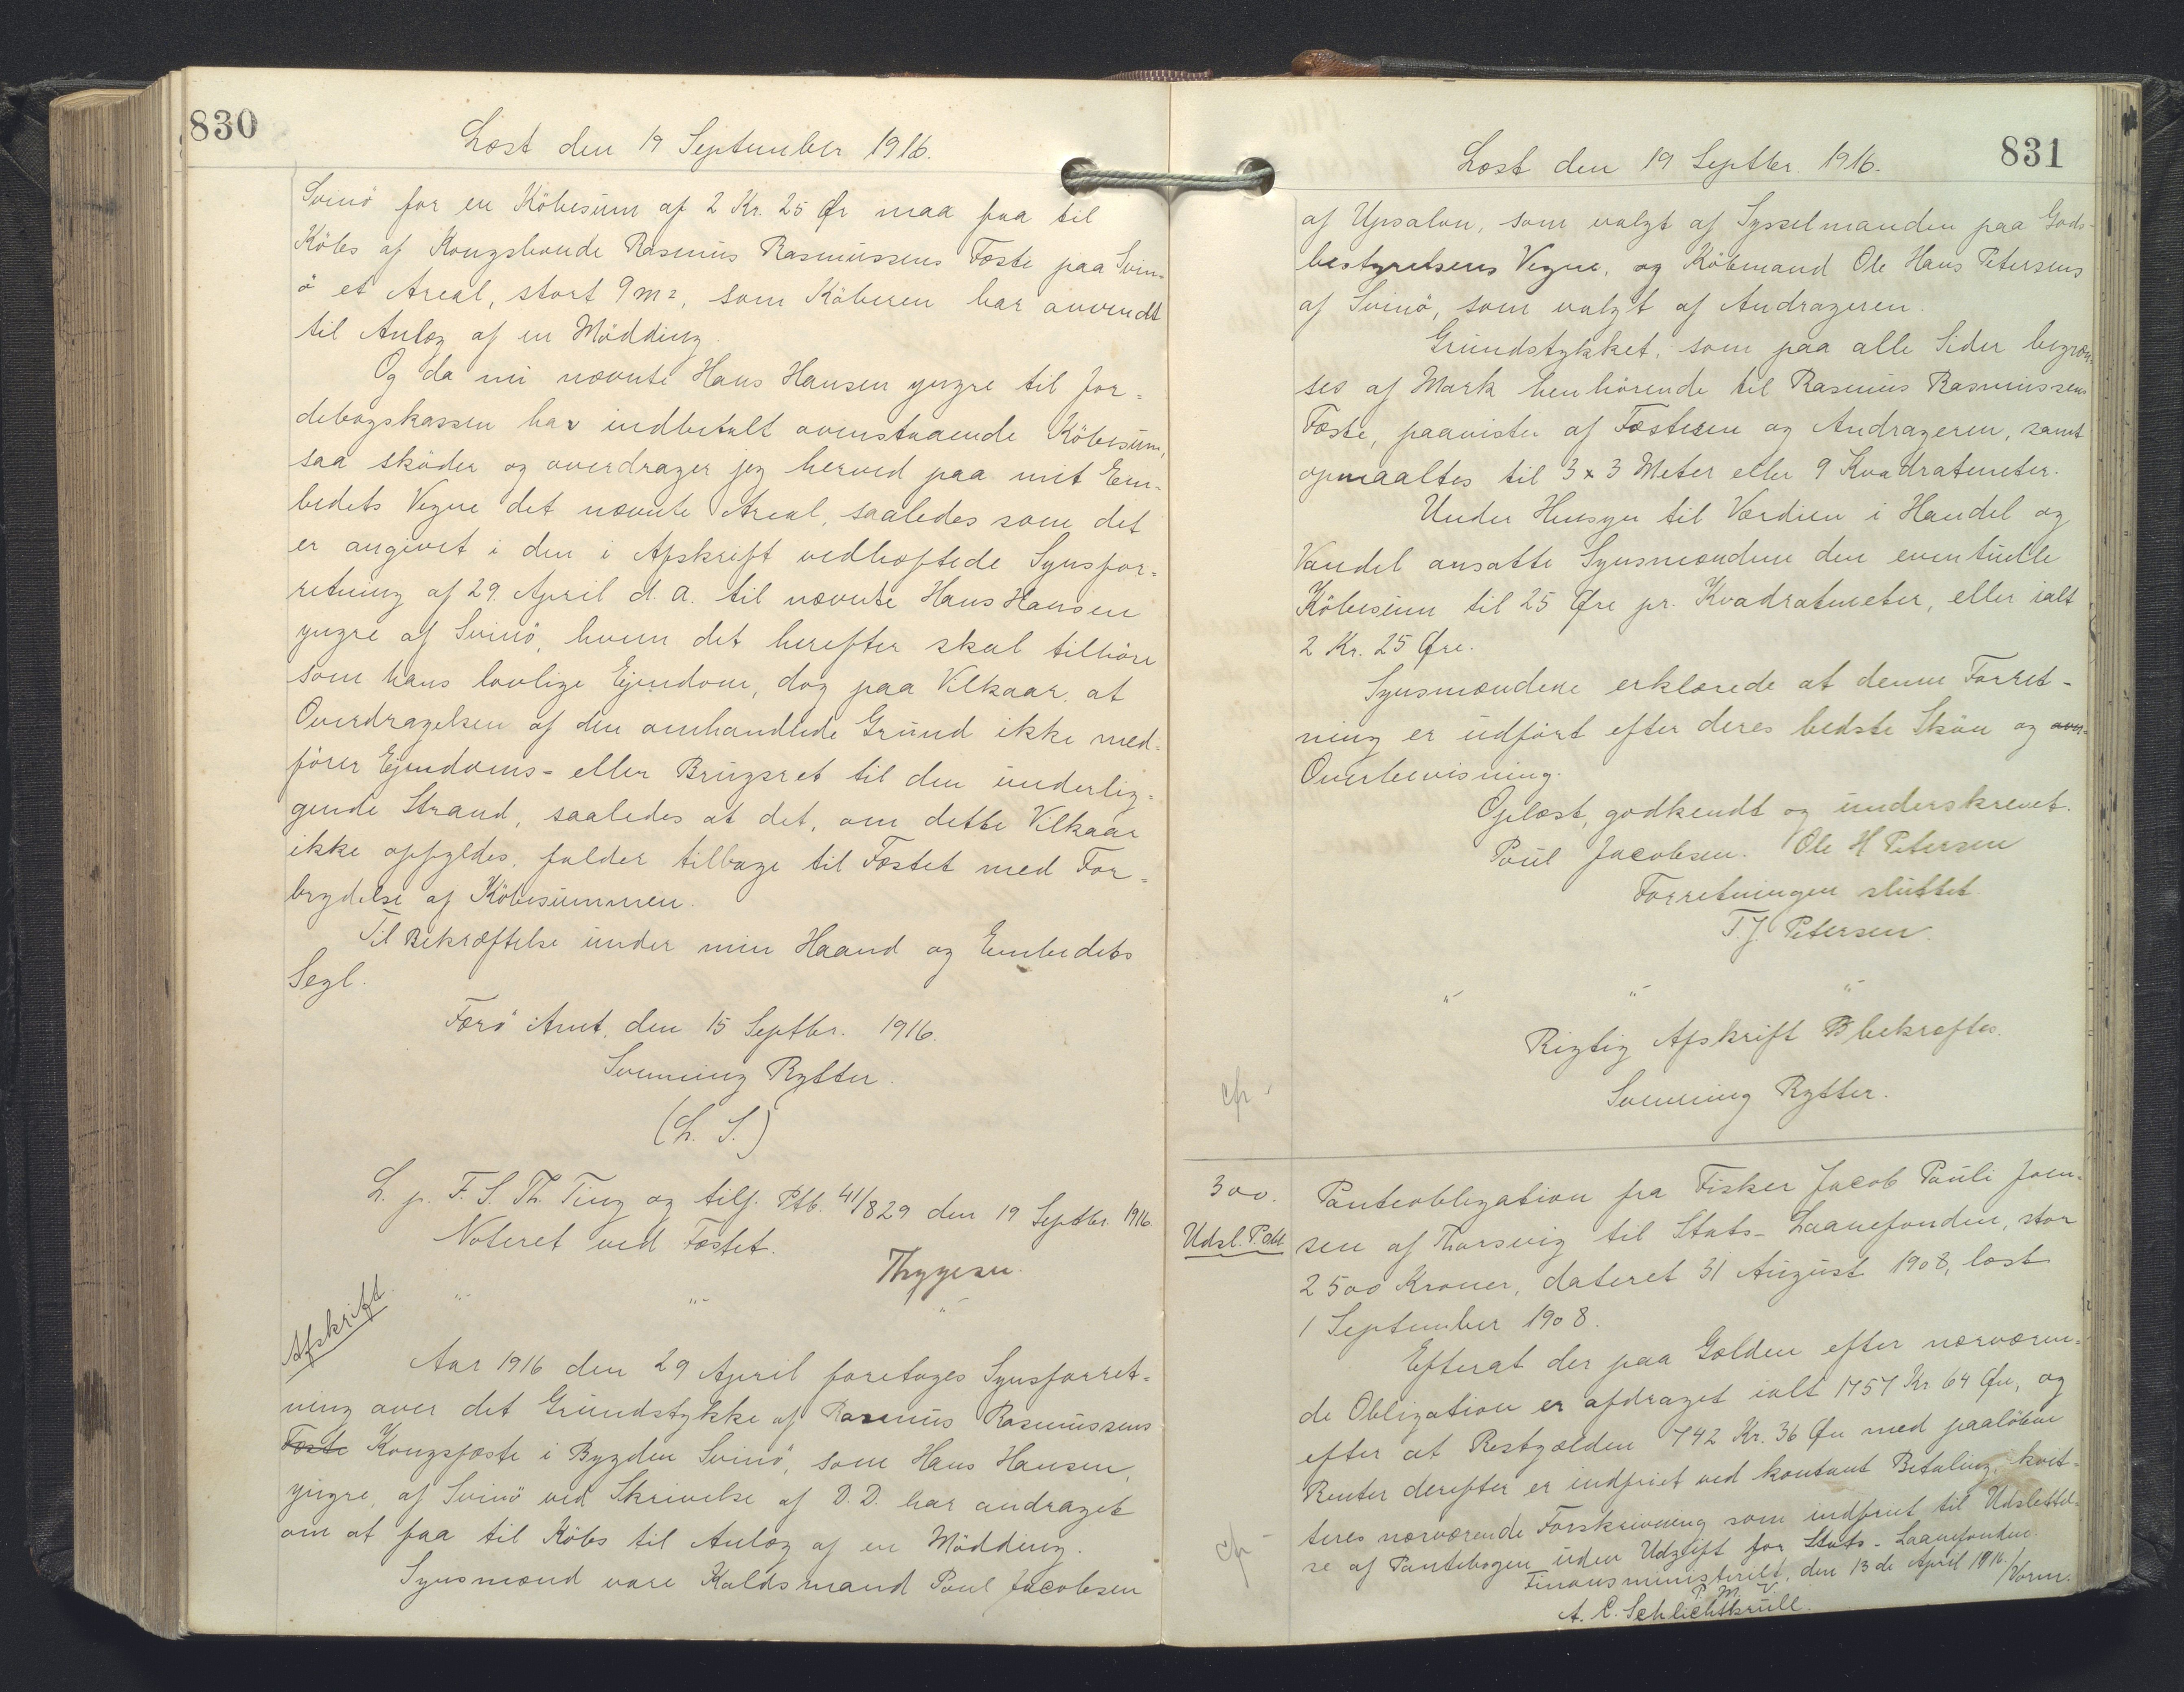 830
Læst den 19 September 1916.
Svinö for en Köbesum af 2 Kr. 25 Ør maa faa til
Köbs af Kongsbonde Rasmus Rasmussens Fæste paa Svin-
ö et Areal, stort 9 m2, som Köberen har anvendt
til Anlæg af en Mödding.
Og da nu nævnte Hans Hansen yngre til Jor-
debogskassen har indbetalt ovenstaaende Köbesum,
saa sköder og overdrager jeg herved paa mit Em-
bedets Vegne det nævnte Areal, saaledes som det
er angivet i den i Afskrift vedhæftede Synsfor-
retning af 29 April d. A. til nævnte Hans Hansen
yngre af Svinö, hvem det herefter skal tilhöre
som hans lovlige Ejendom, dog paa Vilkaar, at
Overdragelsen af den omhandlede Grund ikke med-
förer Ejendoms- eller Brugsret til den underlig-
gende Strand, saaledes at det, om dette Vilkaar
ikke opfyldes, falder tilbage til Fæstet med For-
brydelse af Köbesummen.
Til Bekræftelse under min Haand og Embedets
Segl.
Færö Amt, den 15 Septbr. 1916.
Svenning Rytter.
(L. S.)
L. p. F. S. Th. Ting og tilf. Ptb. 41/829 den 19 Septbr. 1916.
Noteret ved Fæstet.
Thygesen.
" " "
Afskrift.
Aar 1916 den 29 April foretages Synsforret-
ning over det Grundstykke af Rasmus Rasmussens
Fæste Kongsfæste i Bygden Svinö, som Hans Hansen,
yngre, af Svinö ved Skrivelse af D. D. har andraget
om at faa til Köbs til Anlæg af en Mödding.
Synsmænd vare Kaldsmand Poul Jacobsen
831
Læst den 19 Septbr. 1916.
af Upsalon, som valgt af Sysselmanden paa Gods-
bestyrelsens Vegne, og Köbmand Ole Hans Petersens
af Svinö, som valgt af Andrageren.
Grundstykket, som paa alle Sider begræn-
ses af Mark henhörende til Rasmus Rasmussens
Fæste, paavistes af Fæsteren og Andrageren, samt
opmaaltes til 3 x 3 Meter eller 9 Kvadratmeter.
Under Hensyn til Værdien i Handel og
Vandel ansatte Synsmændene den eventuelle
Köbesum til 25 Øre pr. Kvadratmeter, eller ialt
2 Kr. 25 Øre.
Synsmændene erklærede at denne Forret-
ning er udfört efter deres bedste Skön og over-
Overbevisning.
Oplæst, godkendt og underskrevet.
Poul Jacobsen. Ole H Petersen
Forretningen sluttet.
T. J. Petersen.
" " "
Rigtig Afskrift B bekræftes.
Svenning Rytter.
cfr.
300.
Udsl. P. Obl
Panteobligation fra Fisker Jacob Pauli Joen-
sen af Thorsvig til Stats-Laanefonden, stor
2500 Kroner, dateret 31 August 1908, læst
1 September 1908.
Efterat der paa Gælden efter nærværen-
de Obligation er afdraget ialt 1757 Kr 64 Øre, og
efter at Restgælden 742 Kr. 36 Øre med paalöbne
Renter derefter er indfriet ved kontant Betaling, kvit-
teres nærværende Forskrivning som indfriet til Udslettel-
se af Pantebogen uden Udgift for Stats-Laanefonden.
Finansministeriet, den 13 de April 1916.
P. M. V.
A. C. Schlichtkrull.
/Vorm.
cfr